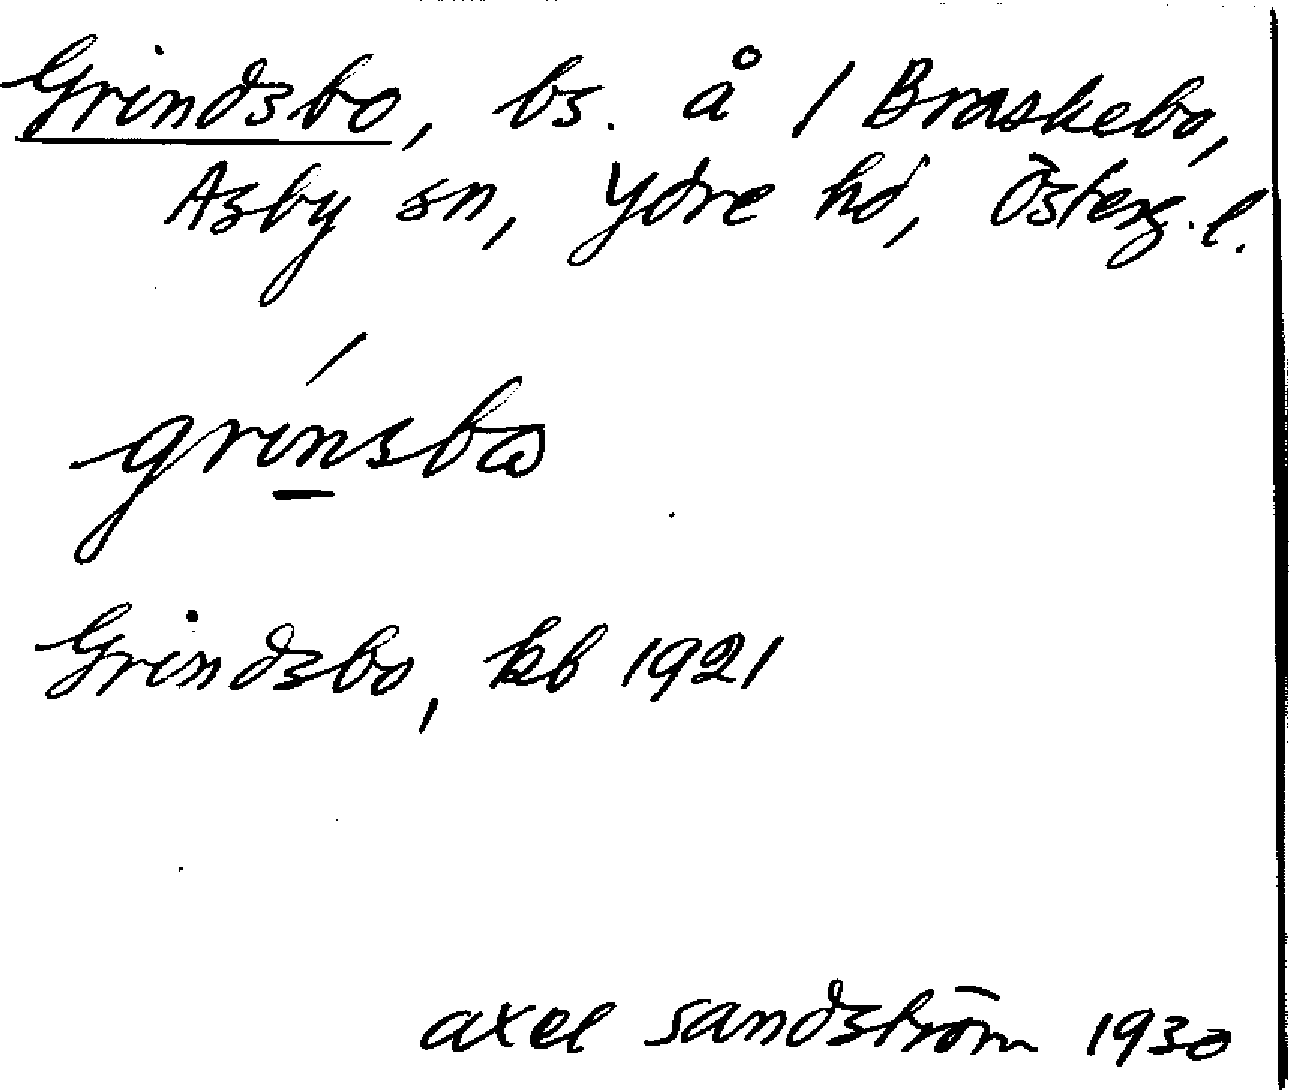 Grindsbo, bs. å 1 Braskebo,
Asby sn, Ydre hd, Österg.l.
grinsbω
Grindsbo, kb 1921
axel sandström 1930